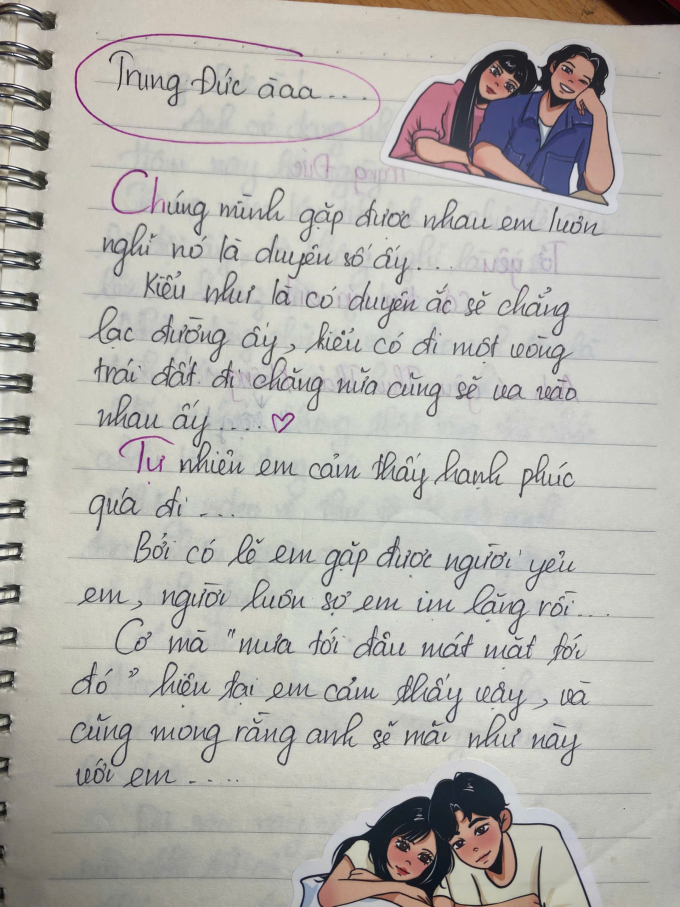 Trung Đức àaa....
Chúng mình gặp được nhau em luôn
nghĩ nó là duyên số ấy....
Kiểu như là có duyên ắc sẽ chẳng
lạc đường ấy, kiểu có đi một vòng
trái đất đi chăng nữa cũng sẽ va vào
nhau ấy.... ♡
Tự nhiên em cảm thấy hạnh phúc
quá đi....
Bởi có lẽ em gặp được người yêu
em, người luôn sợ em im lặng rồi....
Cơ mà "mưa tới đâu mát mặt tới
đó" hiện tại em cảm thấy vậy, và
cũng mong rằng anh sẽ mãi như này
với em.....